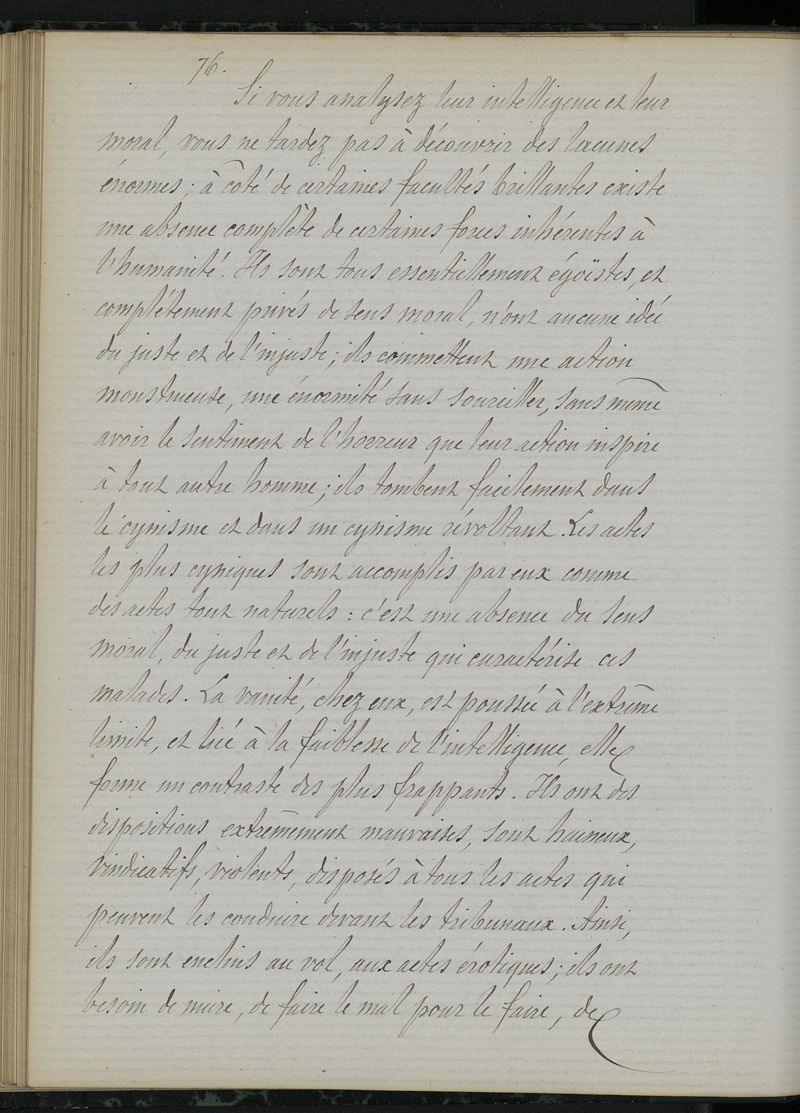 76.
Si vous analysez leur intelligence et leur
moral, vous ne tardez pas à découvrir des lacunes
énormes ; à côté de certaines facultés brillantes existe
une absence complète de certaines forces inhérentes à
l'humanité. Ils sont tous essentiellement égoïstes, et
complétement privés de sens moral, n'ont aucune idée
du juste et de l'injuste ; ils commettent une action
monstrueuse, une énormité sans sourciller, sans même
avoir le sentiment de l'horreur que leur action inspire
à tout autre homme ; ils tombent facilement dans
le cynisme et dans un cynisme révoltant. Les actes
les plus cyniques sont accomplis par eux comme
des actes tout naturels : c'est une absence du sens
moral, du juste et de l'injuste qui caractérise ces
malades. La vanité, chez eux, est poussée à l'extrême
limite, et lié à la faiblesse de l'intelligence, elle
forme un contraste des plus frappants. Ils ont des
dispositions extrêmement mauvaises, sont haineux,
vindicatifs, violents, disposés à tous les actes qui
peuvent les conduire devant les tribunaux. Ainsi,
ils sont enclins au vol, aux actes érotiques ; ils ont
besoin de nuire, de faire le mal pour le faire, de